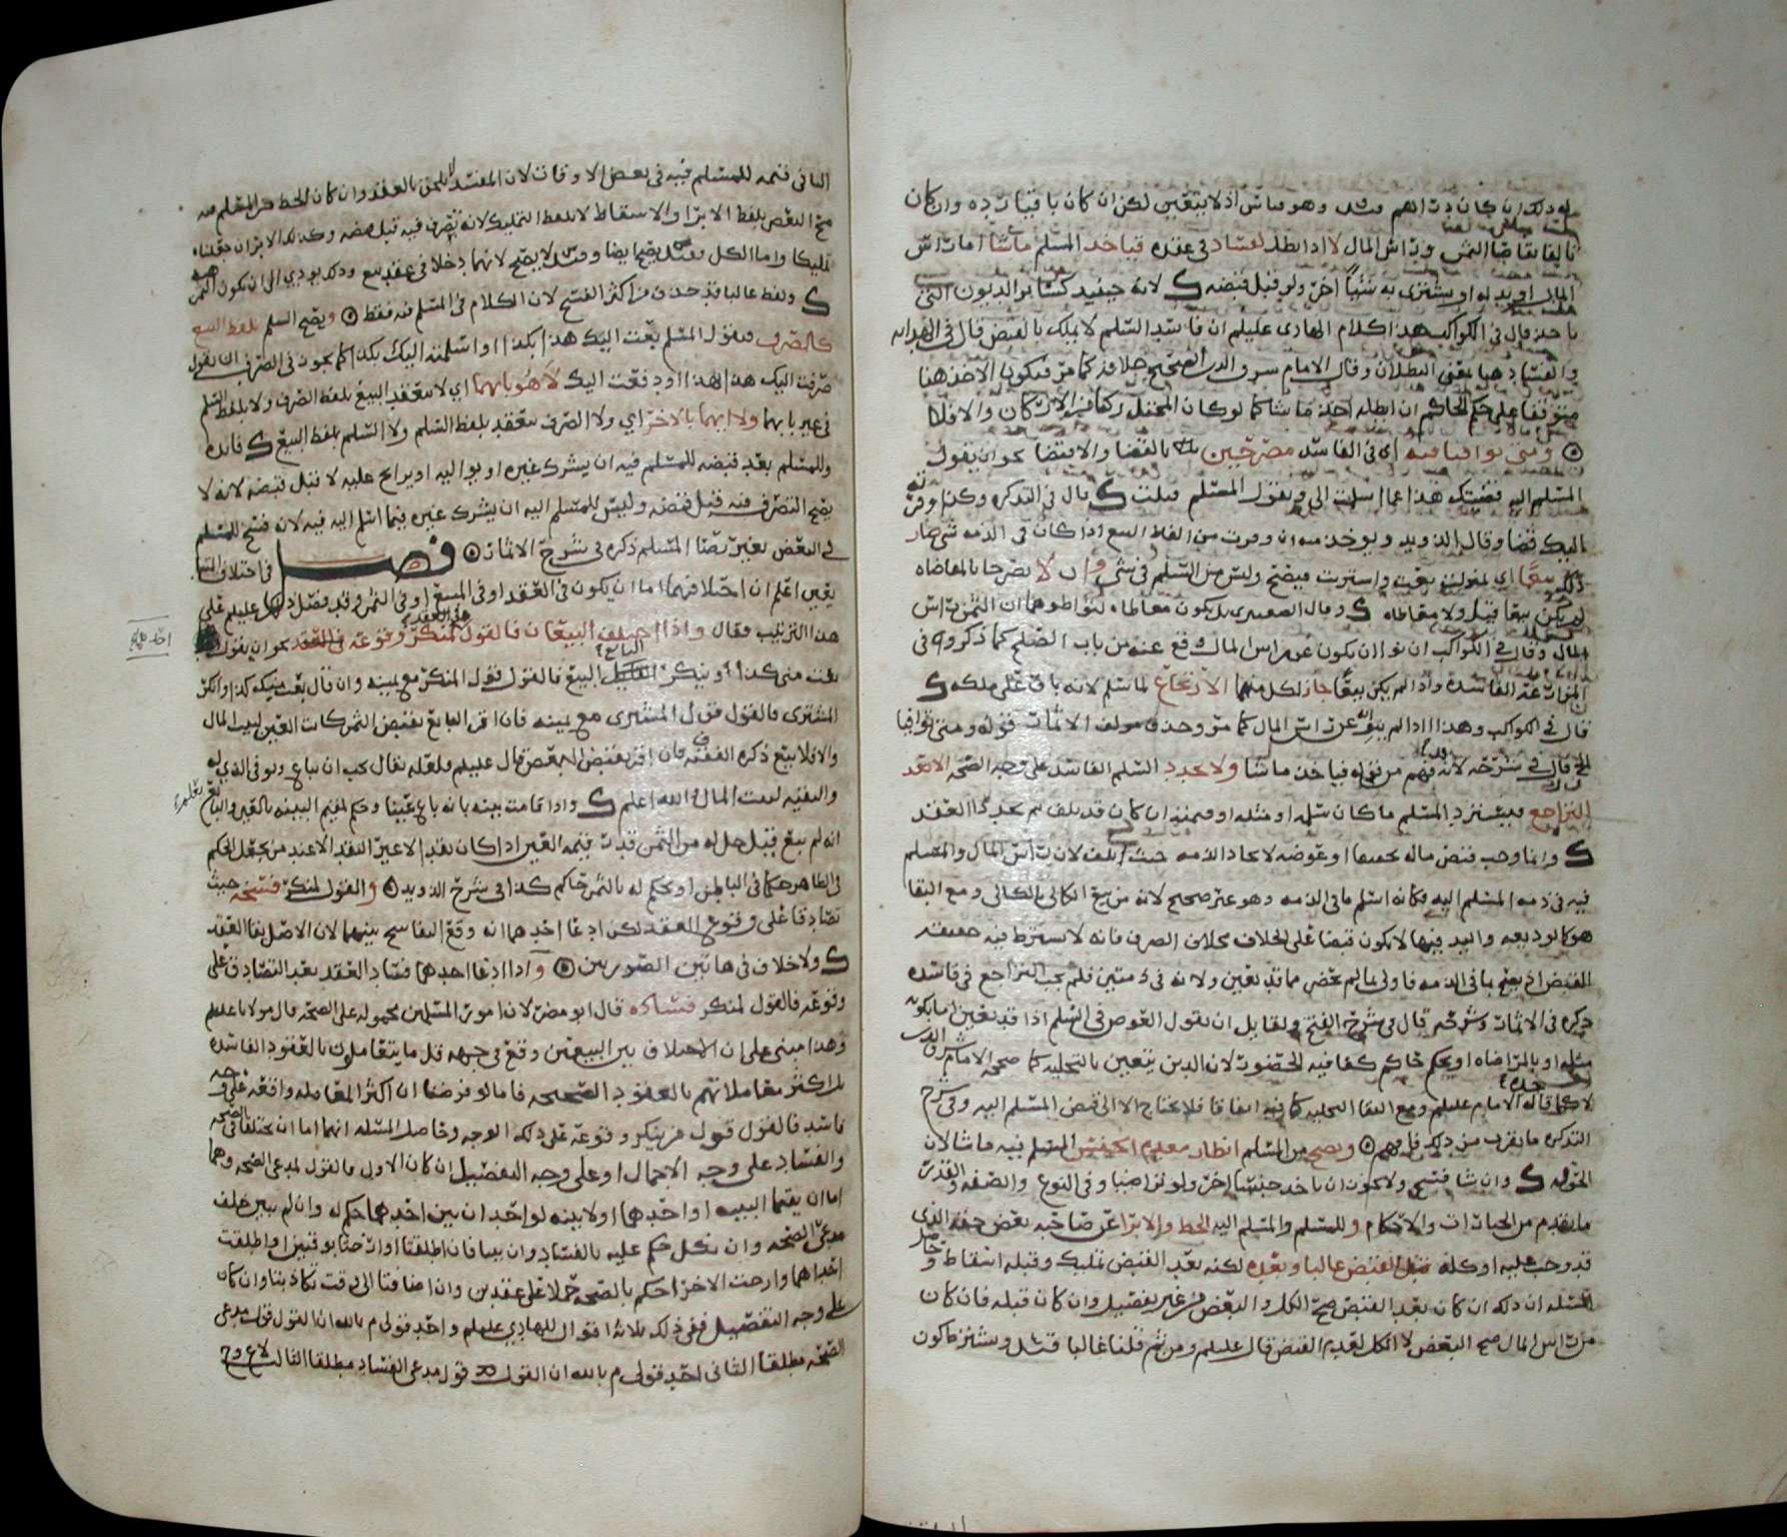 له ذلك ان كان دراهم وهو اذ لا يتعين لكن ان كان باقيا رده وان كان
تالفا تقاصا الثمن وراس المال لا اذا بطل لفساد في عقده فياخذ المسلم ماشا اما راس
المال او بدله او يشتري به شيئا آخر ولو قبل قبضه لانه حينيذ كسائر الديون التي
ياخذ قال في الكواكب هذا كلام الهادي عليلم ان فاسد السلم لا يملك بالقبض قال في الهدايه
والفساد هنا بمعنى البطلان وقال الامام شرف الدين الصحيح خلافه كما مر فيكون الاخذ هنا
متوقفا على حكم الحاكم ان ابطله اخذ ماشا كما لو كان المختل ركنا من الاركان والا فلا
ومتى توافيا فيه اي في الفاسد مصرحين بالقضا والاقتضا نحو ان يقول
المسلم اليه قضيتك هذا عما اسلمت الي ويقول المسلم قبلت قال في التذكره وكذا وفرته
اليك قضا وقال الذويد ويوخذ منه ان وفرت من الفاظ البيع اذا كان في الذمه شي صار
ذلك بيعا اي بمنزلت بعت واشتريت فيصح وليس من السلم في شي وان لا يصرحا بالمقاضاه
لم يكن بيعا قيل ولا مقاضاه وقال الصعيتري بل يكون معاطاه لتواطوهما ان الثمن راس
المال وقال في الكواكب ان نوا ان يكون عن راس المال وقع عنه من باب الصلح كما ذكروه في
المزارعه الفاسده واذا لم يكن بيعا جاز لكل منهما الارتجاع لما سلم لانه باق على ملكه
قال في الكواكب وهذا اذا لم يبره عن راس المال كما مر وحذف مولف الاثمار قوله ومتى توافيا
الخ قال في شرحه لانه فهم من قوله فياخذ ماشا ولا يجدد السلم الفاسد على وجه الصحه الا بعد
التراجع فيسترد المسلم ما كان سلم او مثله او قيمته ان كان قد تلف ثم يجددا العقد
وانما وجب قبض ماله تحقيقا او عوضه لاتحاد الذمه حيث تلف لان راس المال والمسلم
فيه في ذمه المسلم اليه فكانه اسلم ما في الذمه وهو غير صحيح لانه من بيع الكالي بالكالي ومع البقا
هو كالوديعه واليد فيها لا يكون قبضا على الخلاف بخلاف الصرف فانه لا يشترط فيه حقيقه
القبض اذ يصح بما في الذمه فاولى بما لم يحضر مما قد تعين ولانه في ذمتين فلم يجب التراجع في فاسده
ذكره في الاثمار وشرحه قال في شرح الفتح ولقايل ان يقول العوض في السلم اذا قد تعين اما بكونه
مثله او بالمراضاه او بحكم حاكم كفا فيه الحضور لان الدين يتعين بالتخليه كما صححه الامام شرف الدين
لا كما قاله الامام عليلم ومع البقا التخليه كافيه اتفاقا فلا يحتاج الا الى قبض المسلم اليه وفي شرح
التذكره ما يقرب من ذلك فليفهم ويصح من المسلم انظار معدم الجنس المسلم فيه ماشا لان
الحق له وان شا فسخ ولا يجوز ان ياخذ جنسا آخر ولو تراضيا وفي النوع والصفه والقدر
ما تقدم من الخيارات والاحكام وللمسلم والمسلم اليه الحط والابرا عن صاحبه بعض حقه الذي
قد وجب عليه او كله قبل القبض غالبا وبعده لكنه بعد القبض تمليك وقبله اسقاط وحاصل
المسله ان ذلك ان كان بعد القبض صح الكل والبعض من غير تفصيل وان كان قبله فان كان
من راس المال صح البعض لا الكل لعدم القبض قال عليلم ومن ثم قلنا غالبا قيل ويشترط كون
الباقي قيمه للمسلم فيه في بعض الاوقات لان المفسد لا يلحق بالعقد وان كان الحط من المسلم فيه
صح البعض بلفظ الابرا والاسقاط لا بلفظ التمليك لانه تصرف فيه قبل قبضه وكذلك الابرا ان جعلناه
تمليكا واما الكل فقيل يصح ايضا وقيل لا يصح لانهما دخلا في عقد بيع وذلك يودي الى ان يكون الثمن
ولفظ غالبا قد حذف من اكثر النسخ لان الكلام في المسلم فيه فقط ويصح السلم بلفظ البيع
كالصرف فيقول المسلم بعت اليك هذا بكذا او اسلمت اليك بكذا كما يجوز في الصرف ان يقول
صرفت اليك هذا بهذا او دفعت اليك لا هو بايهما اي لا ينعقد البيع بلفظ الصرف ولا بلفظ السلم
في غير بابهما ولا ايهما بالاخر اي ولا الصرف ينعقد بلفظ السلم ولا السلم بلفظ البيع فايده
وللمسلم بعد قبضه للمسلم فيه ان يشرك غيره او يواليه او يرابح عليه لا قبل قبضه لانه لا
يصح التصرف فيه قبل قبضه وليس للمسلم اليه ان يشرك غيره فيما اسلم اليه فيه لانه فسخ للمسلم
في البعض بغير رضا المسلم ذكره في شرح الاثمار فصل في اختلاف المتبا
يعين اعلم ان اختلافهما اما ان يكون في العقد او في المبيع او في الثمن وقد فصل ذلك عليلم على
هذا الترتيب فقال واذا اختلف البيعان فالقول لمنكر وقوعه في العقد نحو ان يقول
بعت مني كذا وينكر البايع البيع فالقول قول المنكر مع يمينه وان قال بعت منك كذا وانكر
المشتري فالقول قول المشتري مع يمينه فان اقر البايع بقبض الثمن كانت العين لبيت المال
والا فلا بيع ذكره الفقيه ف فان اقر بقبض البعض قال عليلم فلعله يقال يجب ان يباع ويوفى الذي له
والبقيه لبيت المال والله اعلم واذا قامت بينه بانه باع عينا وحكم لمقيم البينه بالعين والبايع
انه لم يبع فيحل له من الثمن قدر قيمه العين اذا كان نقدا لا غير النقد الا عند من يجعل الحكم
في الظاهر حكما في الباطن او يحكم له بالثمن حاكم كذا في شرح الذويد والقول لمنكر فسخه حيث
تصادقا على وقوع العقد لكن ادعا احدهما انه وقع التفاسخ بينهما لان الاصل بقا العقد
ولا خلاف في هاتين الصورتين واذا ادعا احدهما فساد العقد بعد التصادق على
وقوعه فالقول لمنكر فساده قال ابو مضر لان امور المسلمين محموله على الصحه قال مولانا عليلم
وهذا مبني على ان الاختلاف بين البيعين وقع في جهه قل ما يتعاملون بالعقود الفاسده
بل اكثر معاملاتهم بالعقود الصحيحه فاما لو فرضنا ان اكثر المعامله واقعه على وجه
فاسد فالقول قول من ينكر وقوعه على ذلك الوجه وحاصل المسله انهما اما ان يختلفا في الصحه
والفساد على وجه الاجمال او على وجه التفصيل ان كان الاول فالقول لمدعي الصحه وهما
اما ان يقيما البينه او احدهما او لا بينه لواحد ان بين احدهما حكم له وان لم يبين حلف
مدعي الصحه وان نكل حكم عليه بالفساد وان بينا فان اطلقتا او ارختا بوقتين او اطلقت
احداهما وارخت الاخرى حكم بالصحه حملا على عقدين وان اضافتا الى وقت تكاذبتا وان كان
على وجه التفصيل ففي ذلك ثلاثه اقوال للهادي عليلم واحد قولي م بالله ان القول قول مدعي
الصحه مطلقا الثاني احد قولي م بالله ان القول قول مدعي الفساد مطلقا الثالث لاع وح